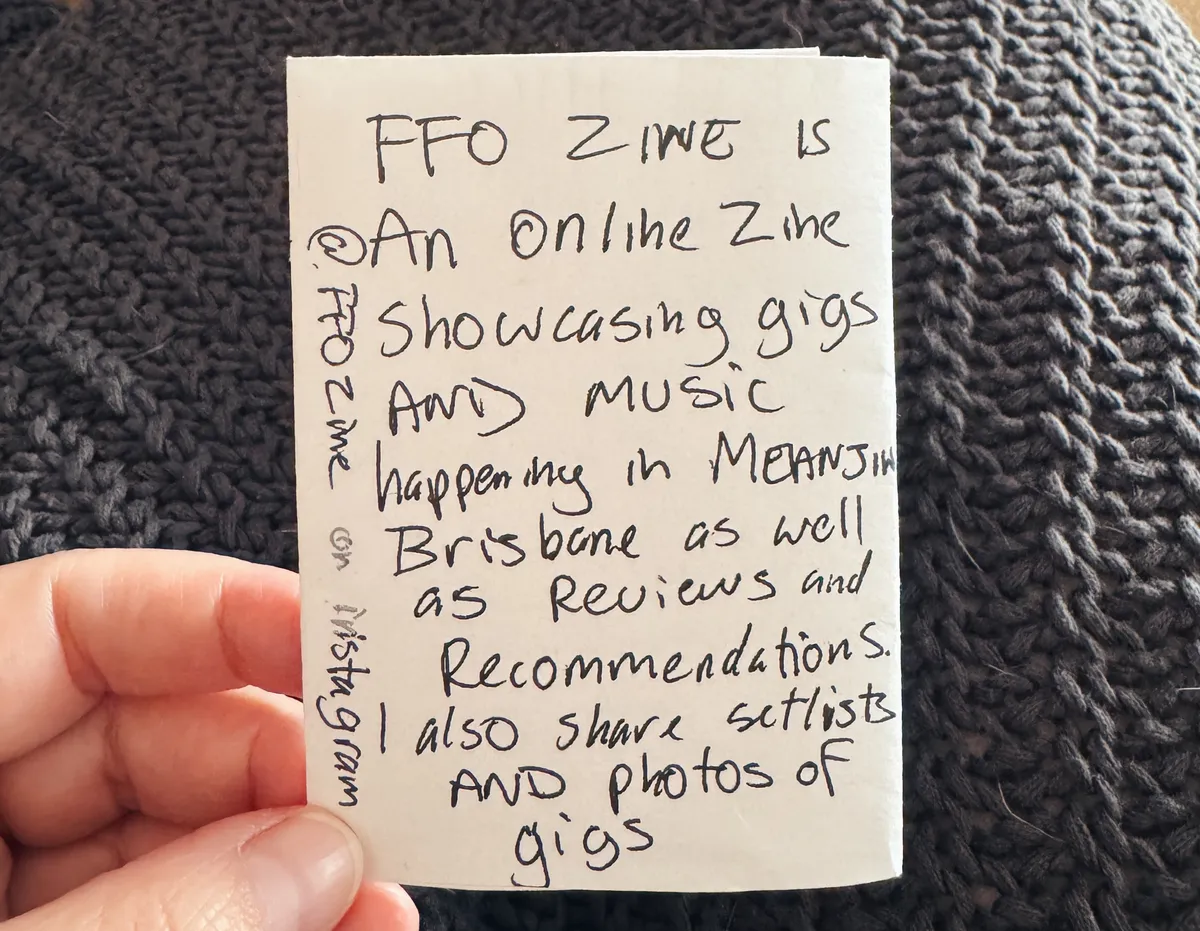 FFO ZINE IS
An Online Zine
showcasing gigs
AND MUSIC
happening in MEANJIN
Brisbane as well
as Reviews and
Recommendations.
I also share setlists
AND photos of
gigs
@FFOZine on instagram